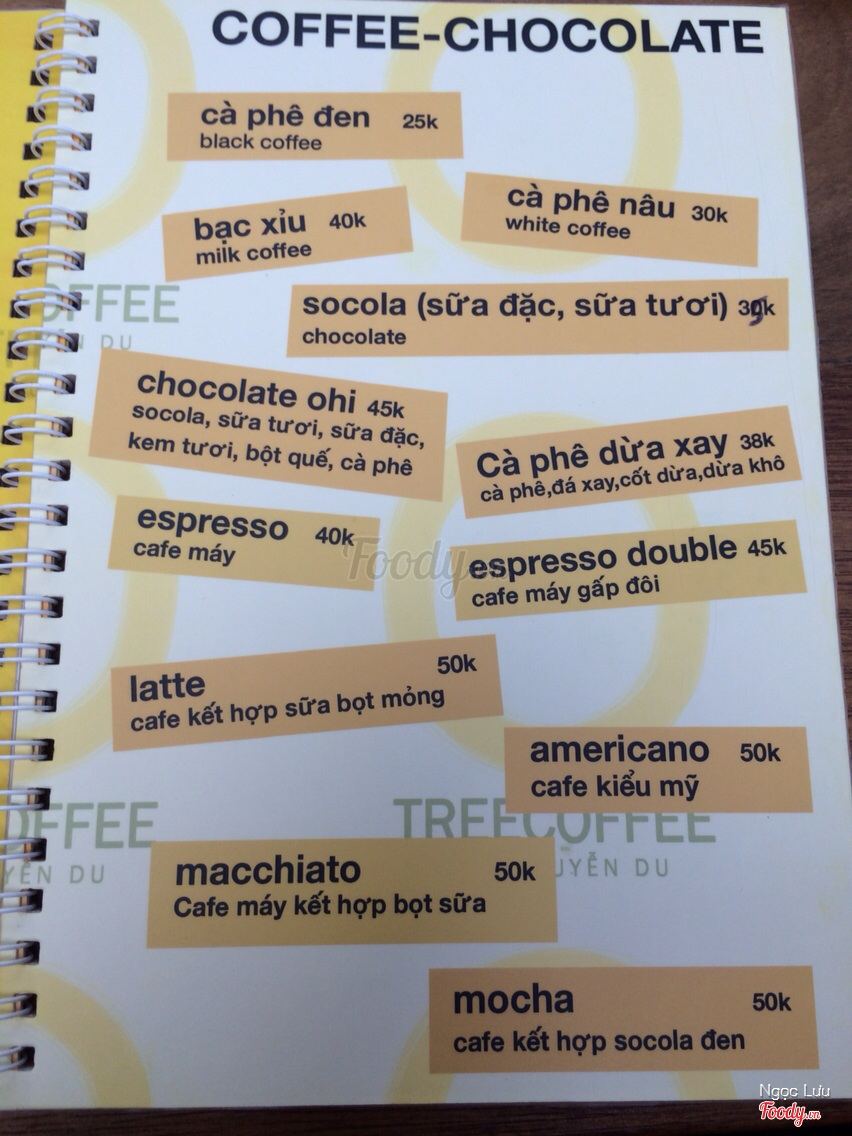 COFFEE-CHOCOLATE
cà phê đen 25k
black coffee
bạc xỉu 40k
milk coffee
cà phê nâu 30k
white coffee
OFFEE
DU
socola (sữa đặc, sữa tươi)
chocolate
chocolate ohi 45k
socola, sữa tươi, sữa đặc,
kem tươi, bột quế, cà phê
Cà phê dừa xay 38k
cà phê,đá xay,cốt dừa,dừa khô
espresso 40k
cafe máy
Foody
espresso double 45k
cafe máy gấp đôi
latte 50k
cafe kết hợp sữa bọt mỏng
americano 50k
cafe kiểu mỹ
OFFEE
YỄN DU
TREECOFFEE
UYỄN DU
macchiato 50k
Cafe máy kết hợp bọt sữa
mocha 50k
cafe kết hợp socola đen
Ngọc Lưu
Foody.vn